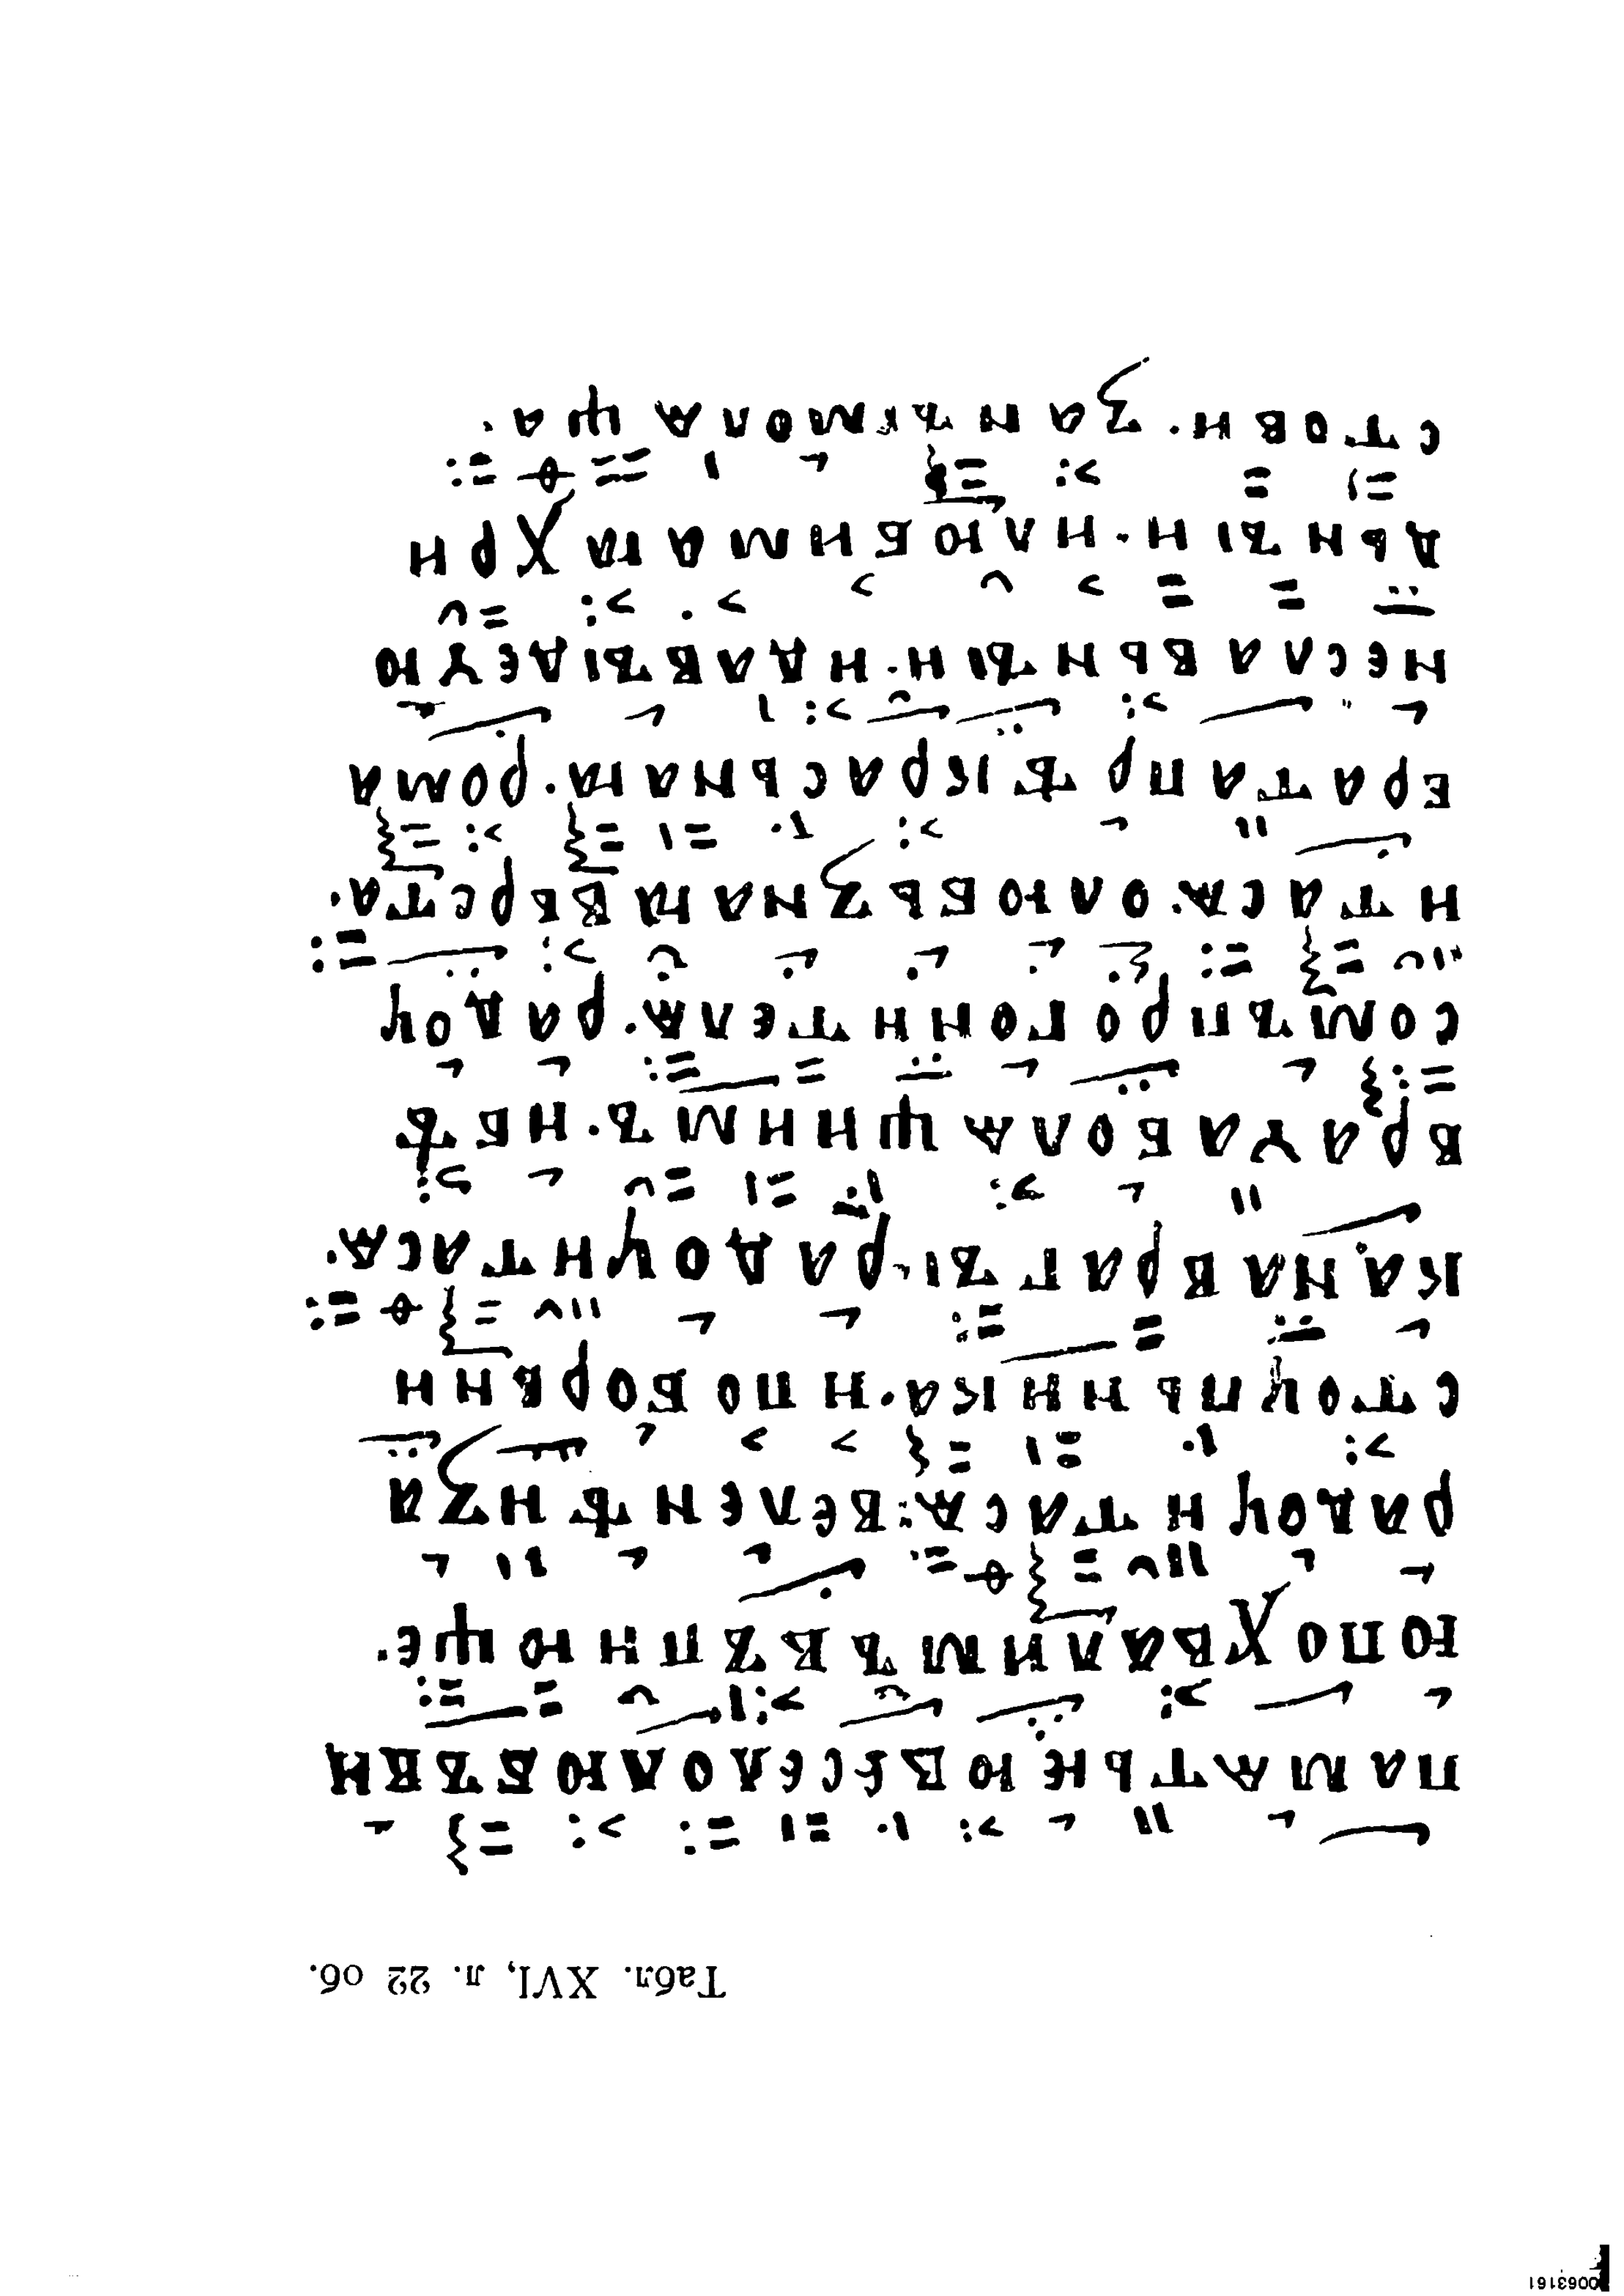 Табл. XVI, л. 22 об.
памѧтьнеювеселолюбъви
юпохвалимъвъпиюще·
радоуитасѧ:велеиѣиза
стоупьника·ипоборьни
канаврагъі·радоуитасѧ·
врачаболѧщиимъ·ибѣ
сомъпрогонителѧ·радоу
итасѧ·олюбьзнаꙗвьрста·
ератапрѣкрасьнаꙗ·рома
неславьнъіи·идавъідечю
дьнъіи·илюбимаꙗхри
стови·занъімолѧща·
0063161